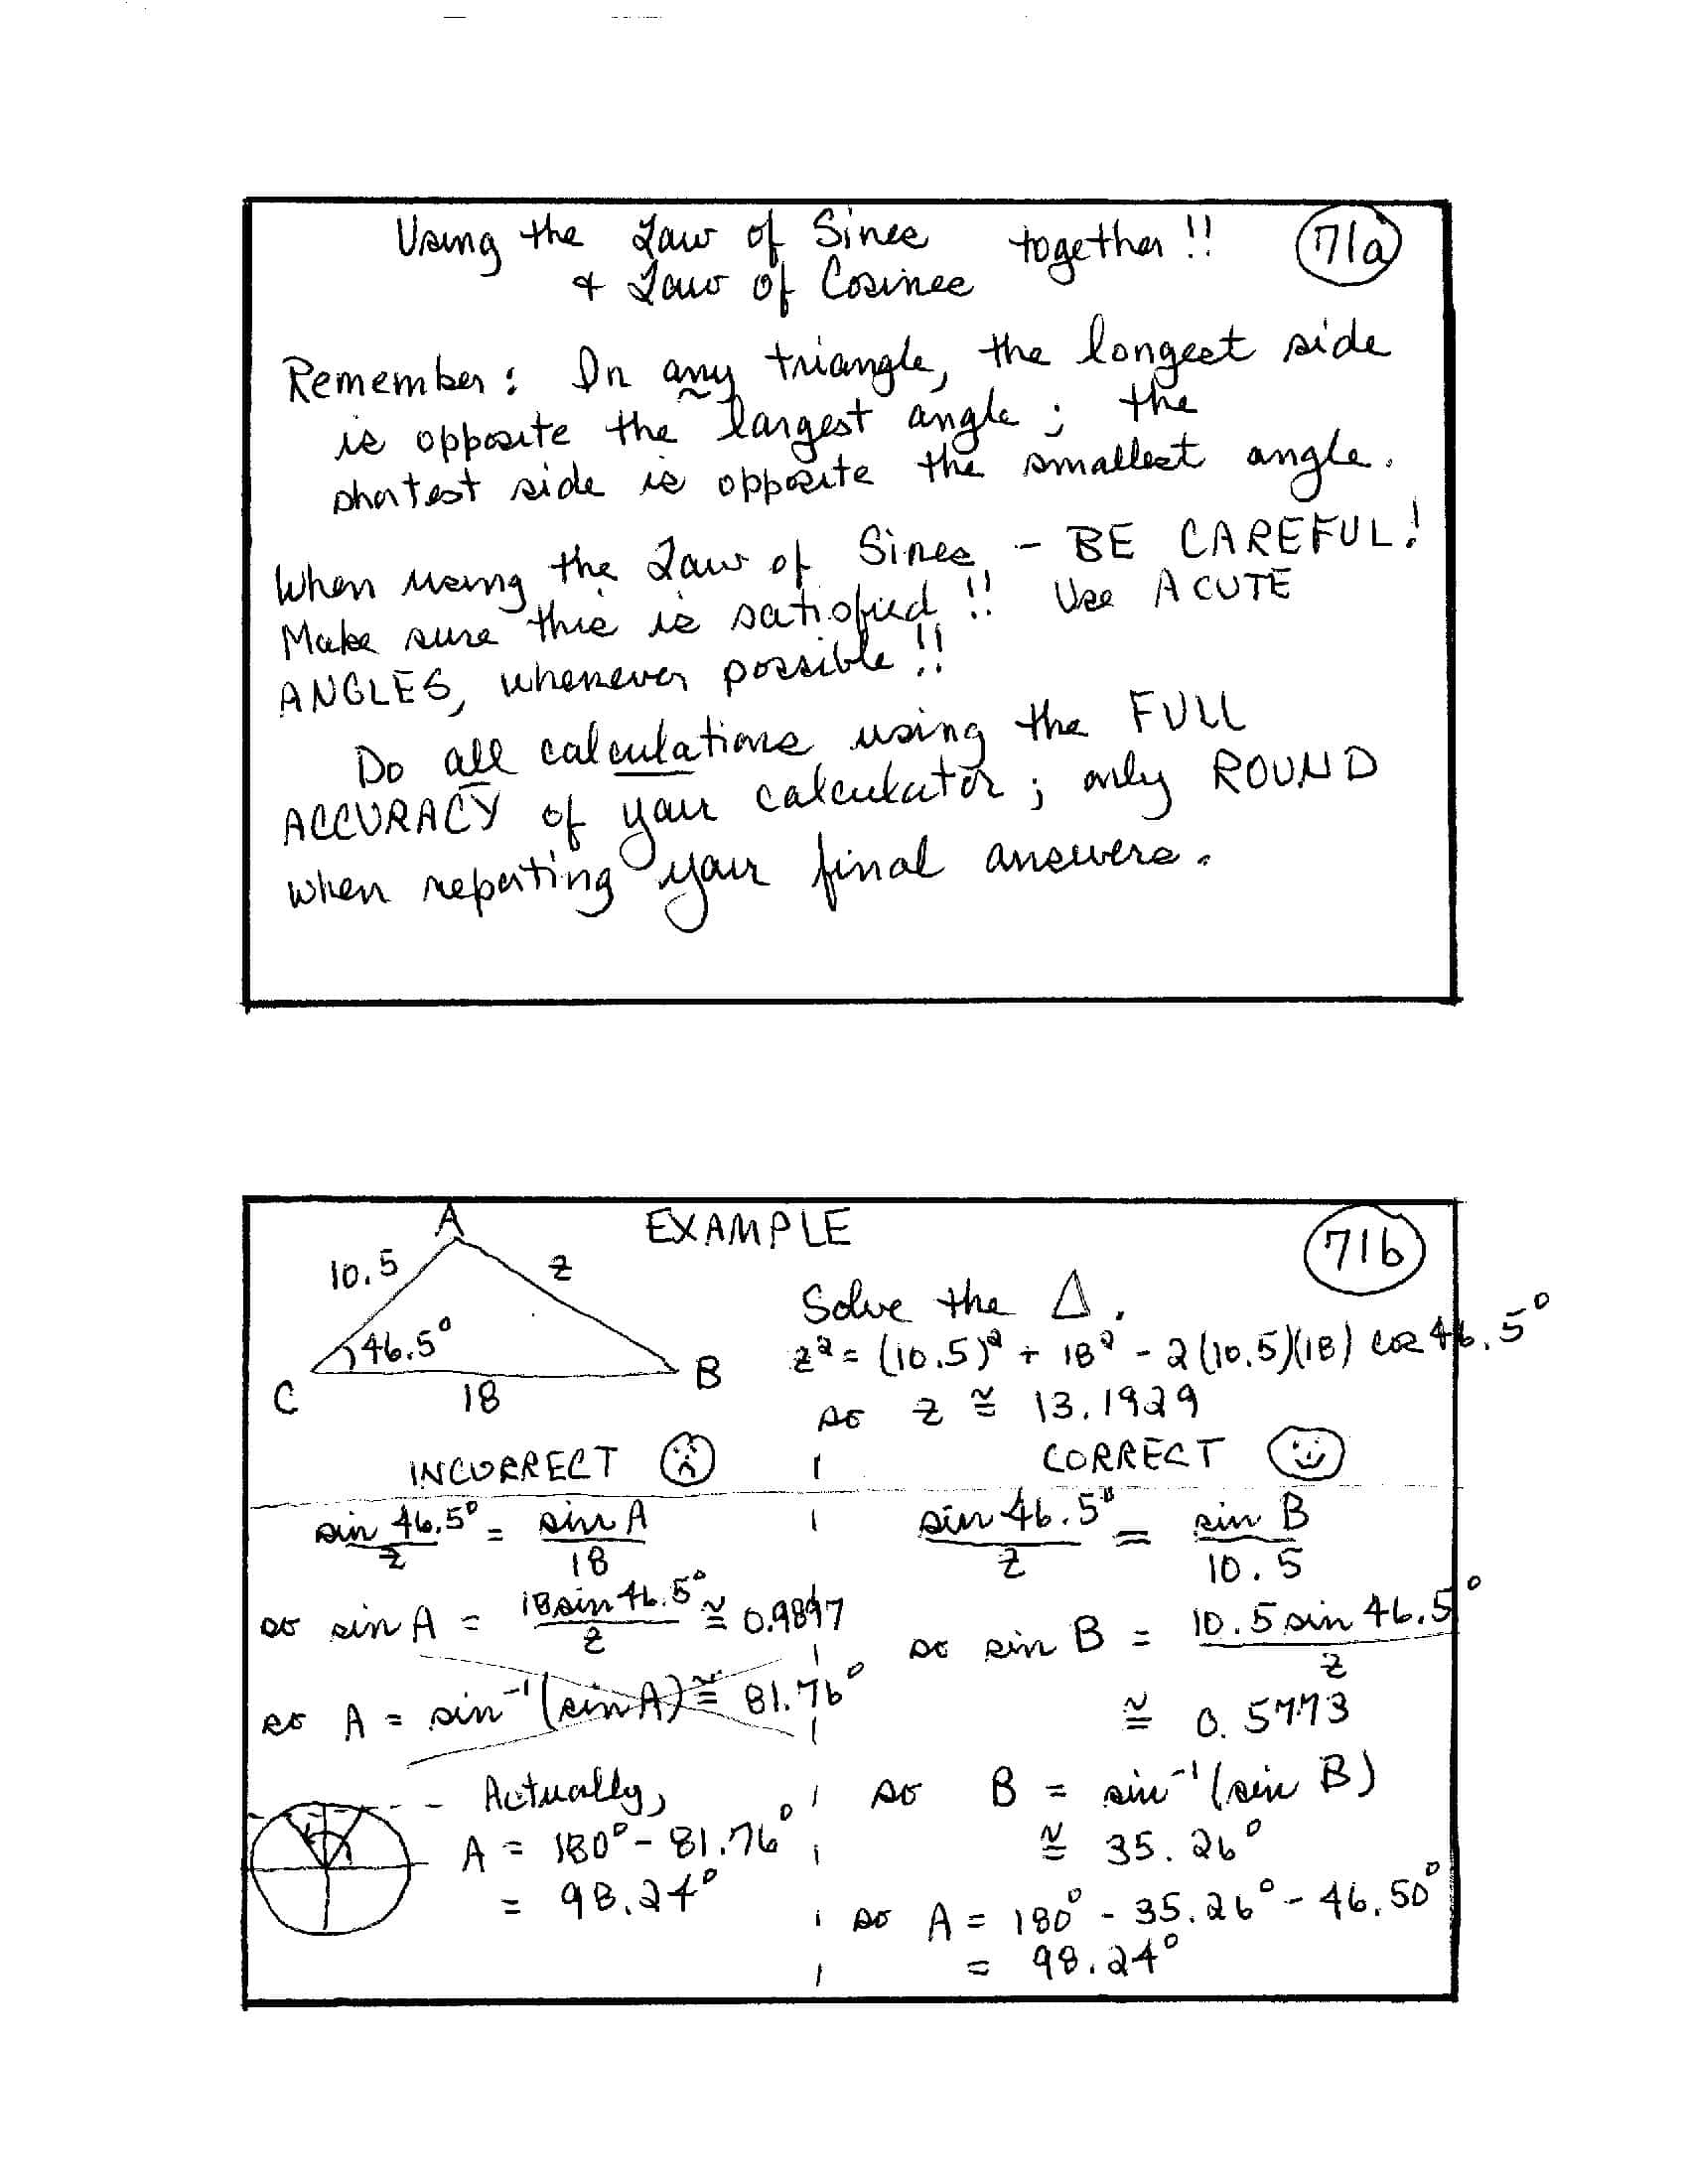 Using the Law of Sines together!! 71a
& Law of Cosines
Remember: In any triangle, the longest side
is opposite the largest angle; the
shortest side is opposite the smallest angle.
When using the Law of Sines - BE CAREFUL!
Make sure this is satisfied!! Use ACUTE
ANGLES, whenever possible!!
Do all calculations using the FULL
ACCURACY of your calculator; only ROUND
when reporting your final answers.
A EXAMPLE 71b
10.5 z
Solve the Δ.
46.5°
z² = (10.5)² + 18² - 2(10.5)(18) cos 46.5°
C 18 B
so z ≅ 13.1929
INCORRECT CORRECT
sin 46.5°/z = sin A/18
sin 46.5°/z = sin B/10.5
so sin A = 18 sin 46.5°/z ≅ 0.9897
so sin B = 10.5 sin 46.5°/z
so A = sin⁻¹(sin A) ≅ 81.76°
≅ 0.5773
Actually,
so B = sin⁻¹(sin B)
A = 180° - 81.76°
≅ 35.26°
= 98.24°
so A = 180° - 35.26° - 46.50°
= 98.24°